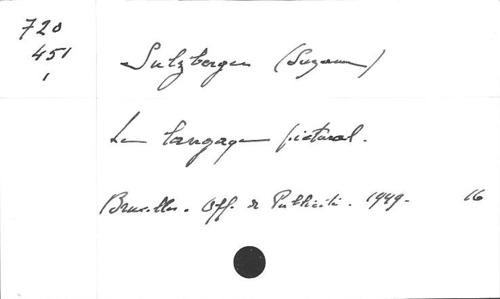 720
451
1
Sulzberger (Suzanne)
Le langage pictural.
Bruxelles. Off. de Publicité. 1949. 16